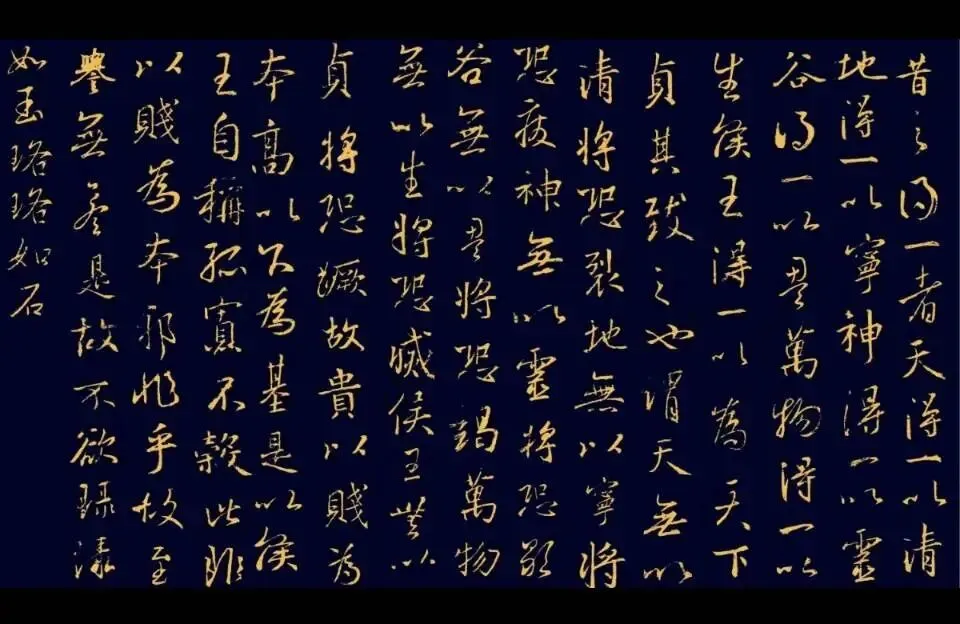 昔之得一者天得一以清
地得一以寧神得一以靈
谷得一以盈萬物得一以
生侯王得一以為天下
貞其致之也謂天無以
清將恐裂地無以寧將
恐廢神無以靈將恐歇
谷無以盈將恐竭萬物
無以生將恐滅侯王無以
貞將恐蹶故貴以賤為
本高以下為基是以侯
王自稱孤寡不穀此非
以賤為本邪非乎故至
譽無譽是故不欲琭琭
如玉珞珞如石